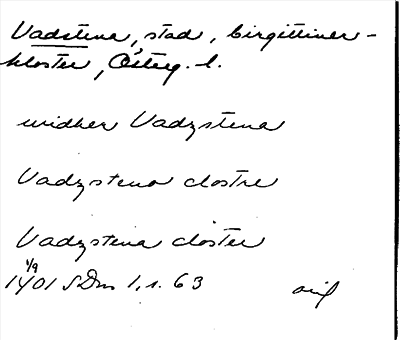 Vadstena, stad, birgittiner-
kloster, Österg. l.
widher Vadzstena
Vadzstena clostre
Vadzstena closter
1/9
1401 SDns 1, s. 63 orig